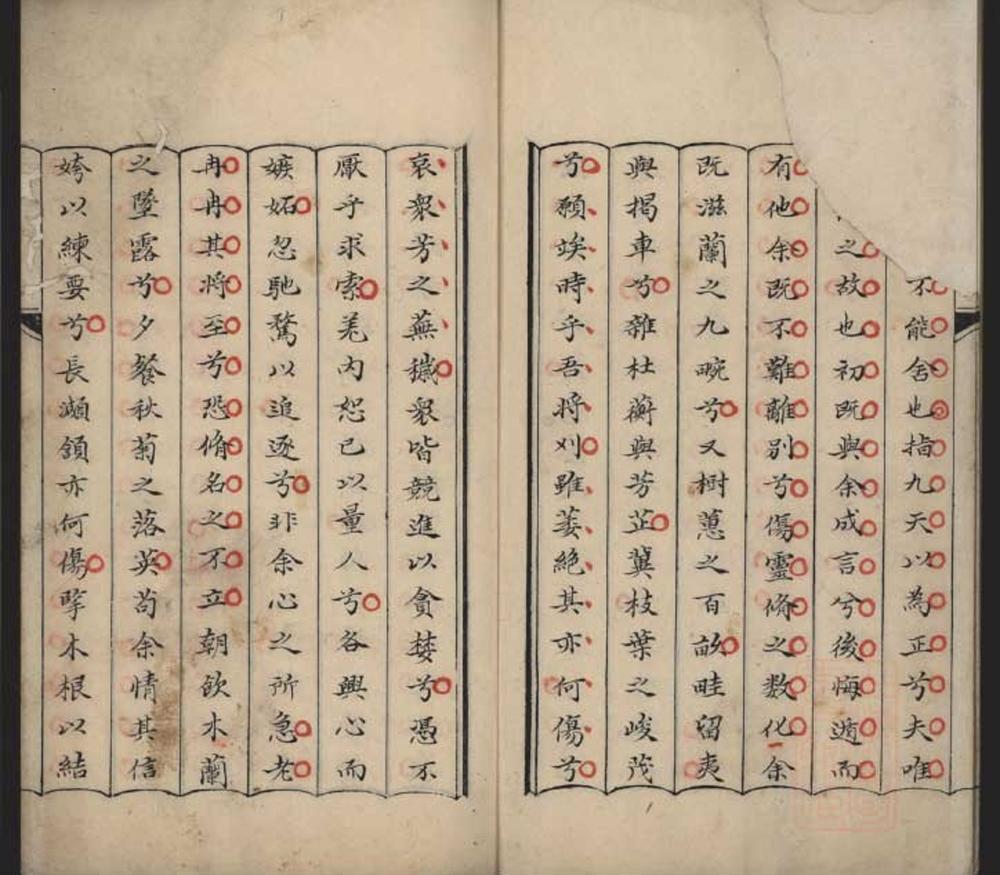 不能舍也指九天以為正兮夫唯
之故也初既與余成言兮後悔遁而
有他余既不難離別兮傷靈脩之数化余
既滋蘭之九畹兮又樹蕙之百畝畦留夷
與揭車兮雜杜蘅與芳芷冀枝葉之峻茂
兮願竢時乎吾將刈雖萎絶其亦何傷兮
哀衆芳之蕪穢衆皆競進以貪婪兮憑不
厭乎求索羌内恕已以量人兮各興心而
嫉妬忽馳騖以追逐兮非余心之所急老
冉冉其將至兮恐脩名之不立朝飲木蘭
之墜露兮夕餐秋菊之落英苟余情其信
姱以練要兮長顑頷亦何傷擥木根以結